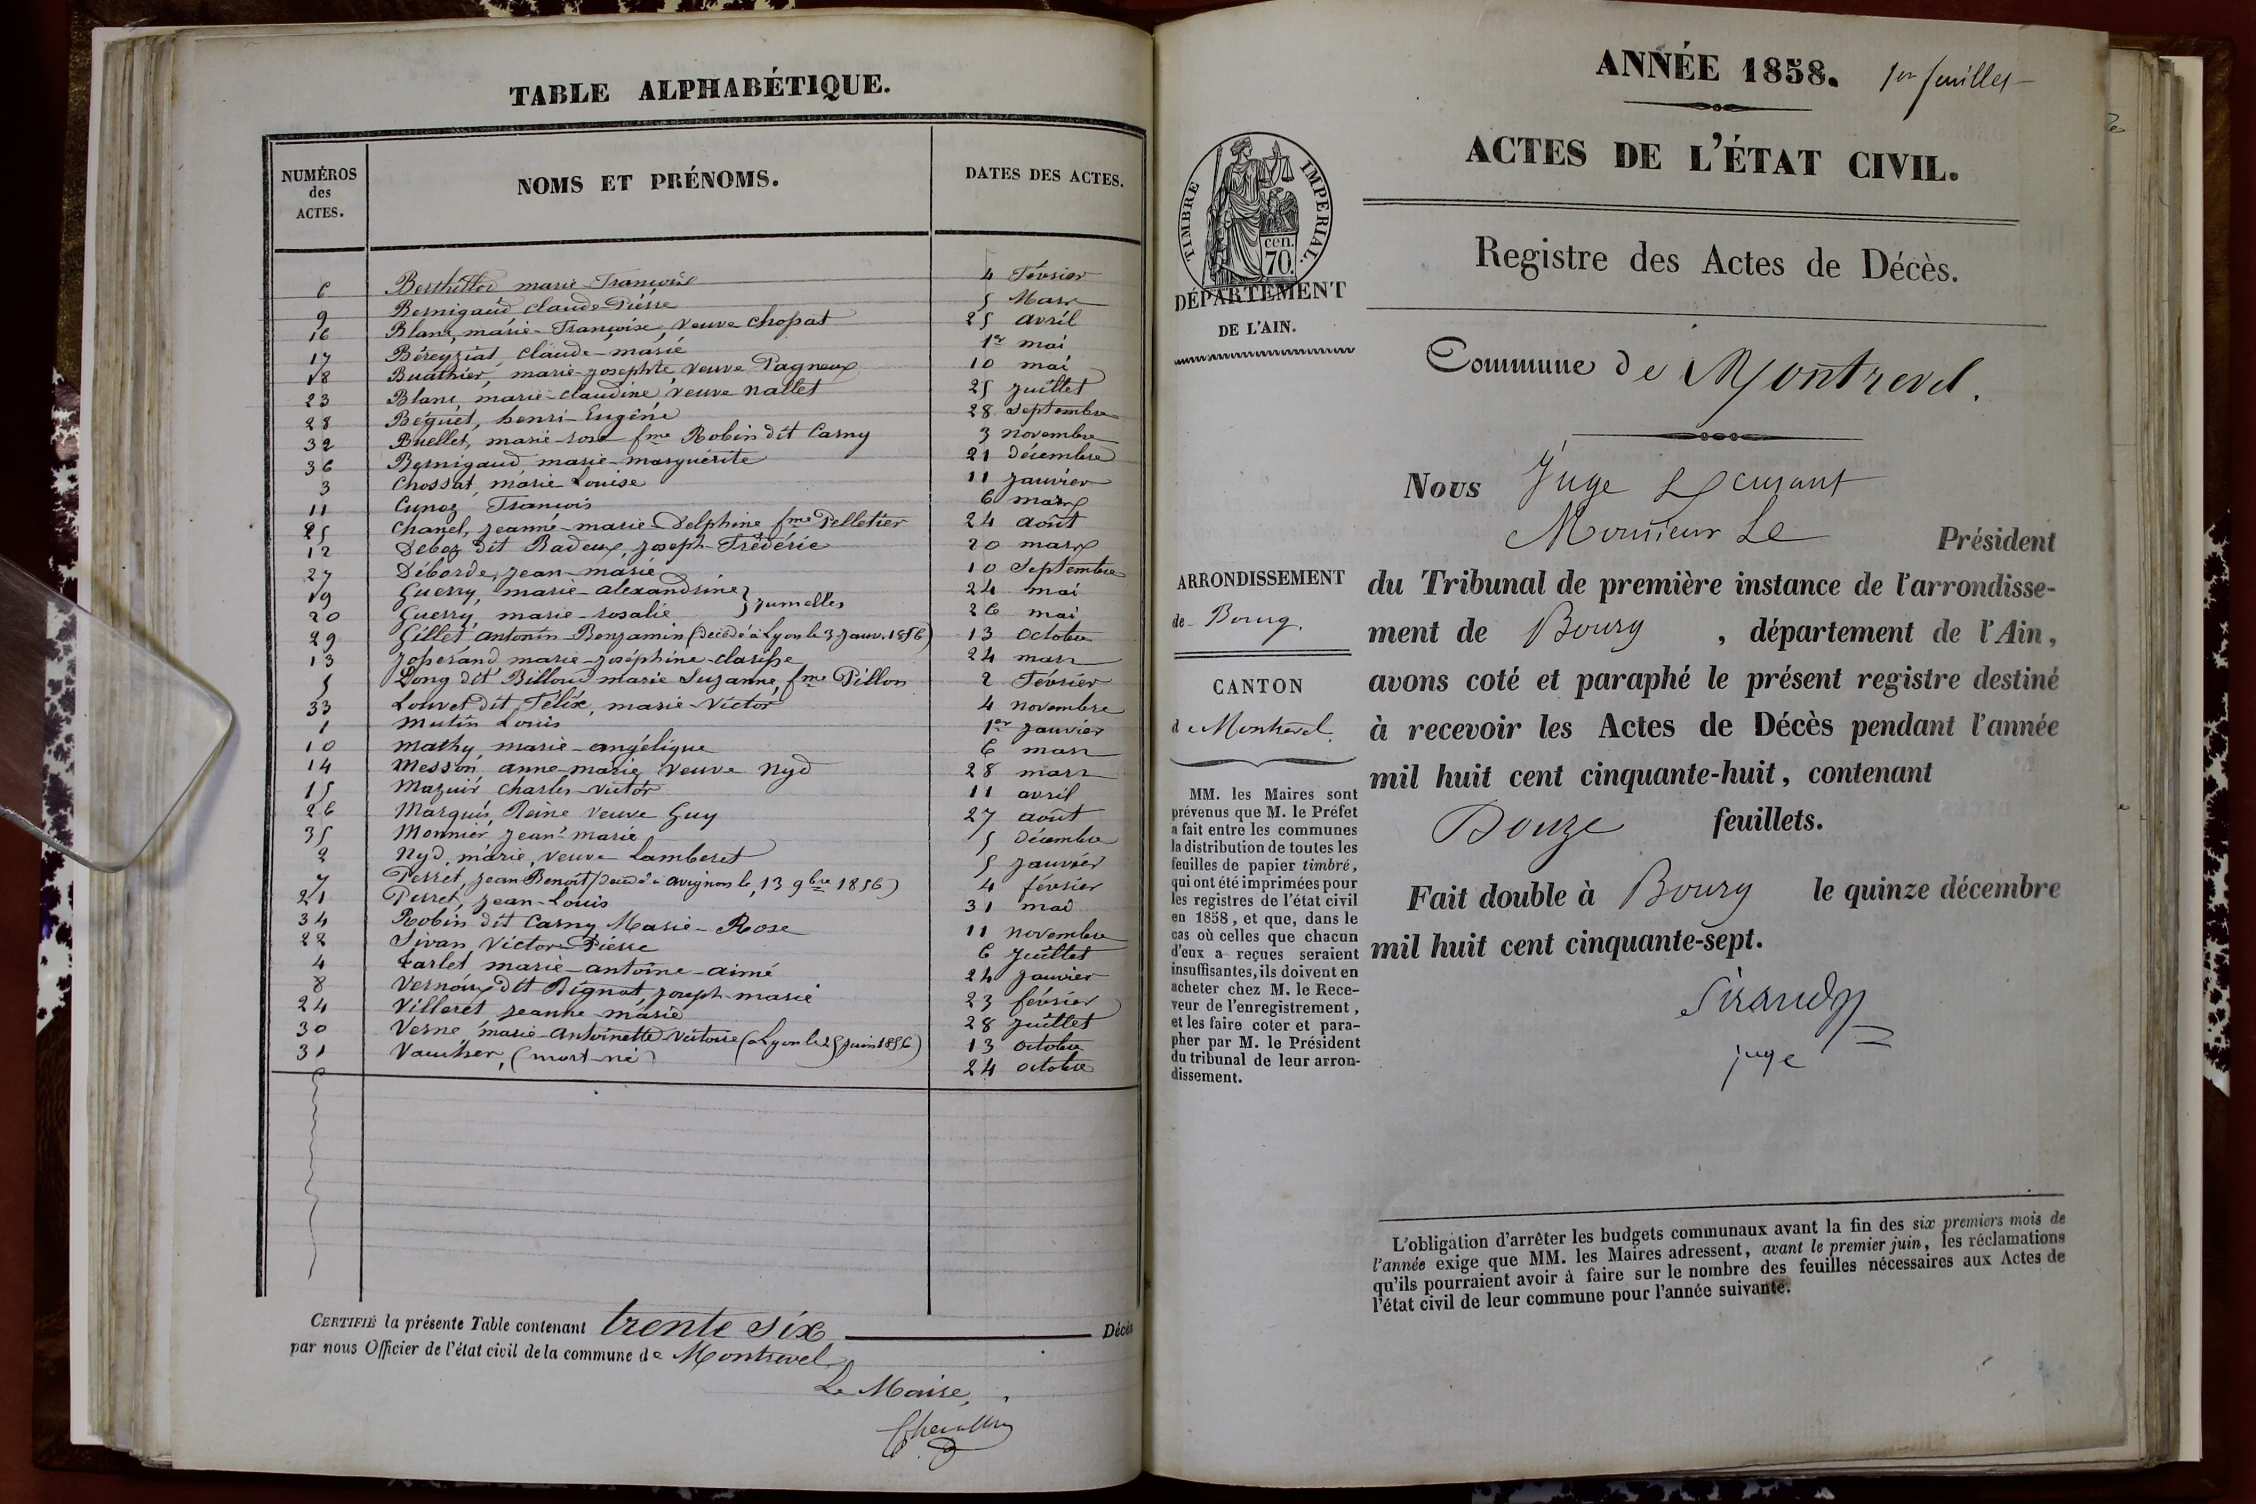 TABLE ALPHABÉTIQUE.
NUMÉROS des ACTES.
NOMS ET PRÉNOMS.
DATES DES ACTES.
6 Berthillod marie-Françoise 4 Février
9 Bernigaud claude Pierre 5 Mars
16 Blanc, marie-Françoise, veuve chopat 25 avril
17 Béreyziat claude-marie 1er mai
18 Buathier, marie-josephte veuve Pagneux 10 mai
23 Blanc marie-claudine veuve nallet 25 juillet
28 Béguet, henri-Eugène 28 septembre
32 Buellet, marie-rose fme Robin dit Carny 3 novembre
36 Bernigaud marie-marguerite 21 décembre
3 Chossat marie Louise 11 janvier
11 Cynoz François 6 mars
25 Chanel, jeanne-marie-Delphine fme Pelletier 24 août
12 Deboz dit Badeux, joseph-Frédéric 20 mars
27 Déborde, jean-marie 10 septembre
19 Guerry, marie-alexandrine 24 mai
20 Guerry, marie-rosalie } jumelles 26 mai
29 Gillet antonin-Benjamin (décédé à Lyon le 3 janv. 1856) 13 octobre
13 Joperand marie-joséphine-clarisse 24 mars
5 Long dit Billoud marie Suzanne, fme Pillon 2 Février
33 Louvet dit Félix, marie-Victor 4 novembre
1 Mutin Louis 1er janvier
10 Mathy marie-angélique 6 mars
14 Messon anne-marie veuve Nyd 28 mars
15 Mazuir charles-victor 11 avril
26 Marquis, Reine veuve Guy 27 août
35 Monnier jean-marie 5 décembre
2 Nyd, marie, veuve Lamberet 5 janvier
7 Perret, jean Benoît (décédé à avignon le 13 9bre 1856) 4 février
21 Perret, jean-Louis 31 mai
34 Robin dit Carny Marie-Rose 11 novembre
22 Sivan Victor-Pierre 6 juillet
4 Tarlet marie-antoine-aimé 24 janvier
8 Vernoux dit Bignat joseph-marie 23 février
24 Villeret jeanne-marie 28 juillet
30 Verne, marie-Antoinette-Victoire (à Lyon le 25 juin 1856) 13 octobre
31 Vauthier, (mort-né) 24 octobre
CERTIFIÉ la présente Table contenant trente six Décès
par nous Officier de l'état civil de la commune de Montrevel
Le Maire,
ANNÉE 1858. 1er feuillet
ACTES DE L'ÉTAT CIVIL.
Registre des Actes de Décès.
TIMBRE IMPERIAL.
cen.
70.
DÉPARTEMENT
DE L'AIN.
Commune de Montrevel.
Nous Juge
Monsieur Le Président
du Tribunal de première instance de l'arrondisse-
ment de Bourg, département de l'Ain,
avons coté et paraphé le présent registre destiné
à recevoir les Actes de Décès pendant l'année
mil huit cent cinquante-huit, contenant
Douze feuillets.
Fait double à Bourg le quinze décembre
mil huit cent cinquante-sept.
juge
ARRONDISSEMENT
de Bourg.
CANTON
de Montrevel.
MM. les Maires sont
prévenus que M. le Préfet
a fait entre les communes
la distribution de toutes les
feuilles de papier timbré,
qui ont été imprimées pour
les registres de l'état civil
en 1858, et que, dans le
cas où celles que chacun
d'eux a reçues seraient
insuffisantes, ils doivent en
acheter chez M. le Rece-
veur de l'enregistrement,
et les faire coter et para-
pher par M. le Président
du tribunal de leur arron-
dissement.
L'obligation d'arrêter les budgets communaux avant la fin des six premiers mois de
l'année exige que MM. les Maires adressent, avant le premier juin, les réclamations
qu'ils pourraient avoir à faire sur le nombre des feuilles nécessaires aux Actes de
l'état civil de leur commune pour l'année suivante.